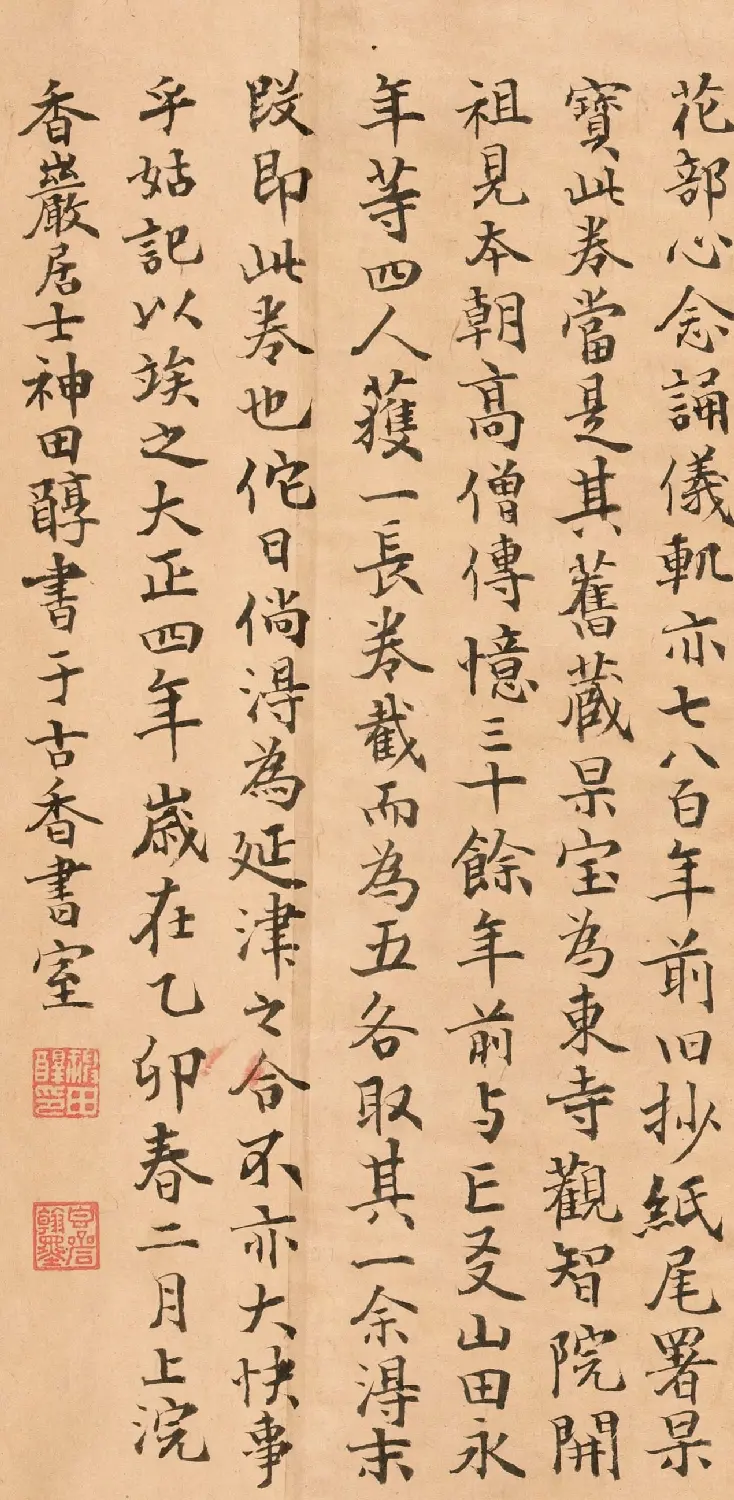 花部心念誦儀軌亦七八百年前旧抄紙尾署杲
寶此巻當是其舊蔵杲宝為東寺觀智院開
祖見本朝高僧傳憶三十餘年前与亡友山田永
年等四人獲一長巻截而為五各取其一余得末
段即此巻也佗日倘得為延津之合不亦大快事
乎姑記以竢之大正四年歳在乙卯春二月上浣
香巖居士神田醇書于古香書室
神田醇印